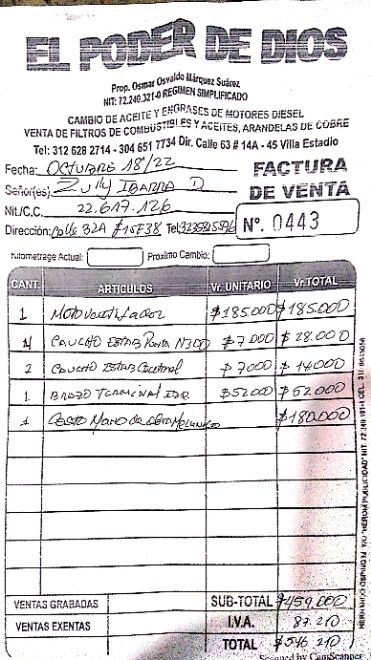 EL PODER DE DIOS
Prop. Osmar Osvaldo Márquez Suárez
NIT: 72.240.321-0 REGIMEN SIMPLIFICADO
CAMBIO DE ACEITE Y ENGRASES DE MOTORES DIESEL
VENTA DE FILTROS DE COMBUSTIBLES Y ACEITES, ARANDELAS DE COBRE
Tel: 312 628 2714 - 304 651 7734 Dir. Calle 63 # 14A - 45 Villa Estadio
Fecha: OCTUBRE 18/22
FACTURA DE VENTA
Señor(es) Zully IBARRA D
Nit./C.C. 22.617.126
Nº. 0443
Dirección: Calle 32A #15E38 Tel:
Kilometrage Actual: Próximo Cambio:
CANT. ARTICULOS Vr. UNITARIO Vr. TOTAL
1 Motoventilador $185.000 $185.000
4 CAUCHO ESTAB N300 $7.000 $28.000
2 CAUCHO ESTAB Central $7000 $14000
1 BRAZO TERMINAL $52000 $52.000
1 COSTO Mano de obra $180.000
VENTAS GRABADAS SUB-TOTAL $459.000
VENTAS EXENTAS I.V.A. 87.210
TOTAL $546.210
Scanned by CamScanner